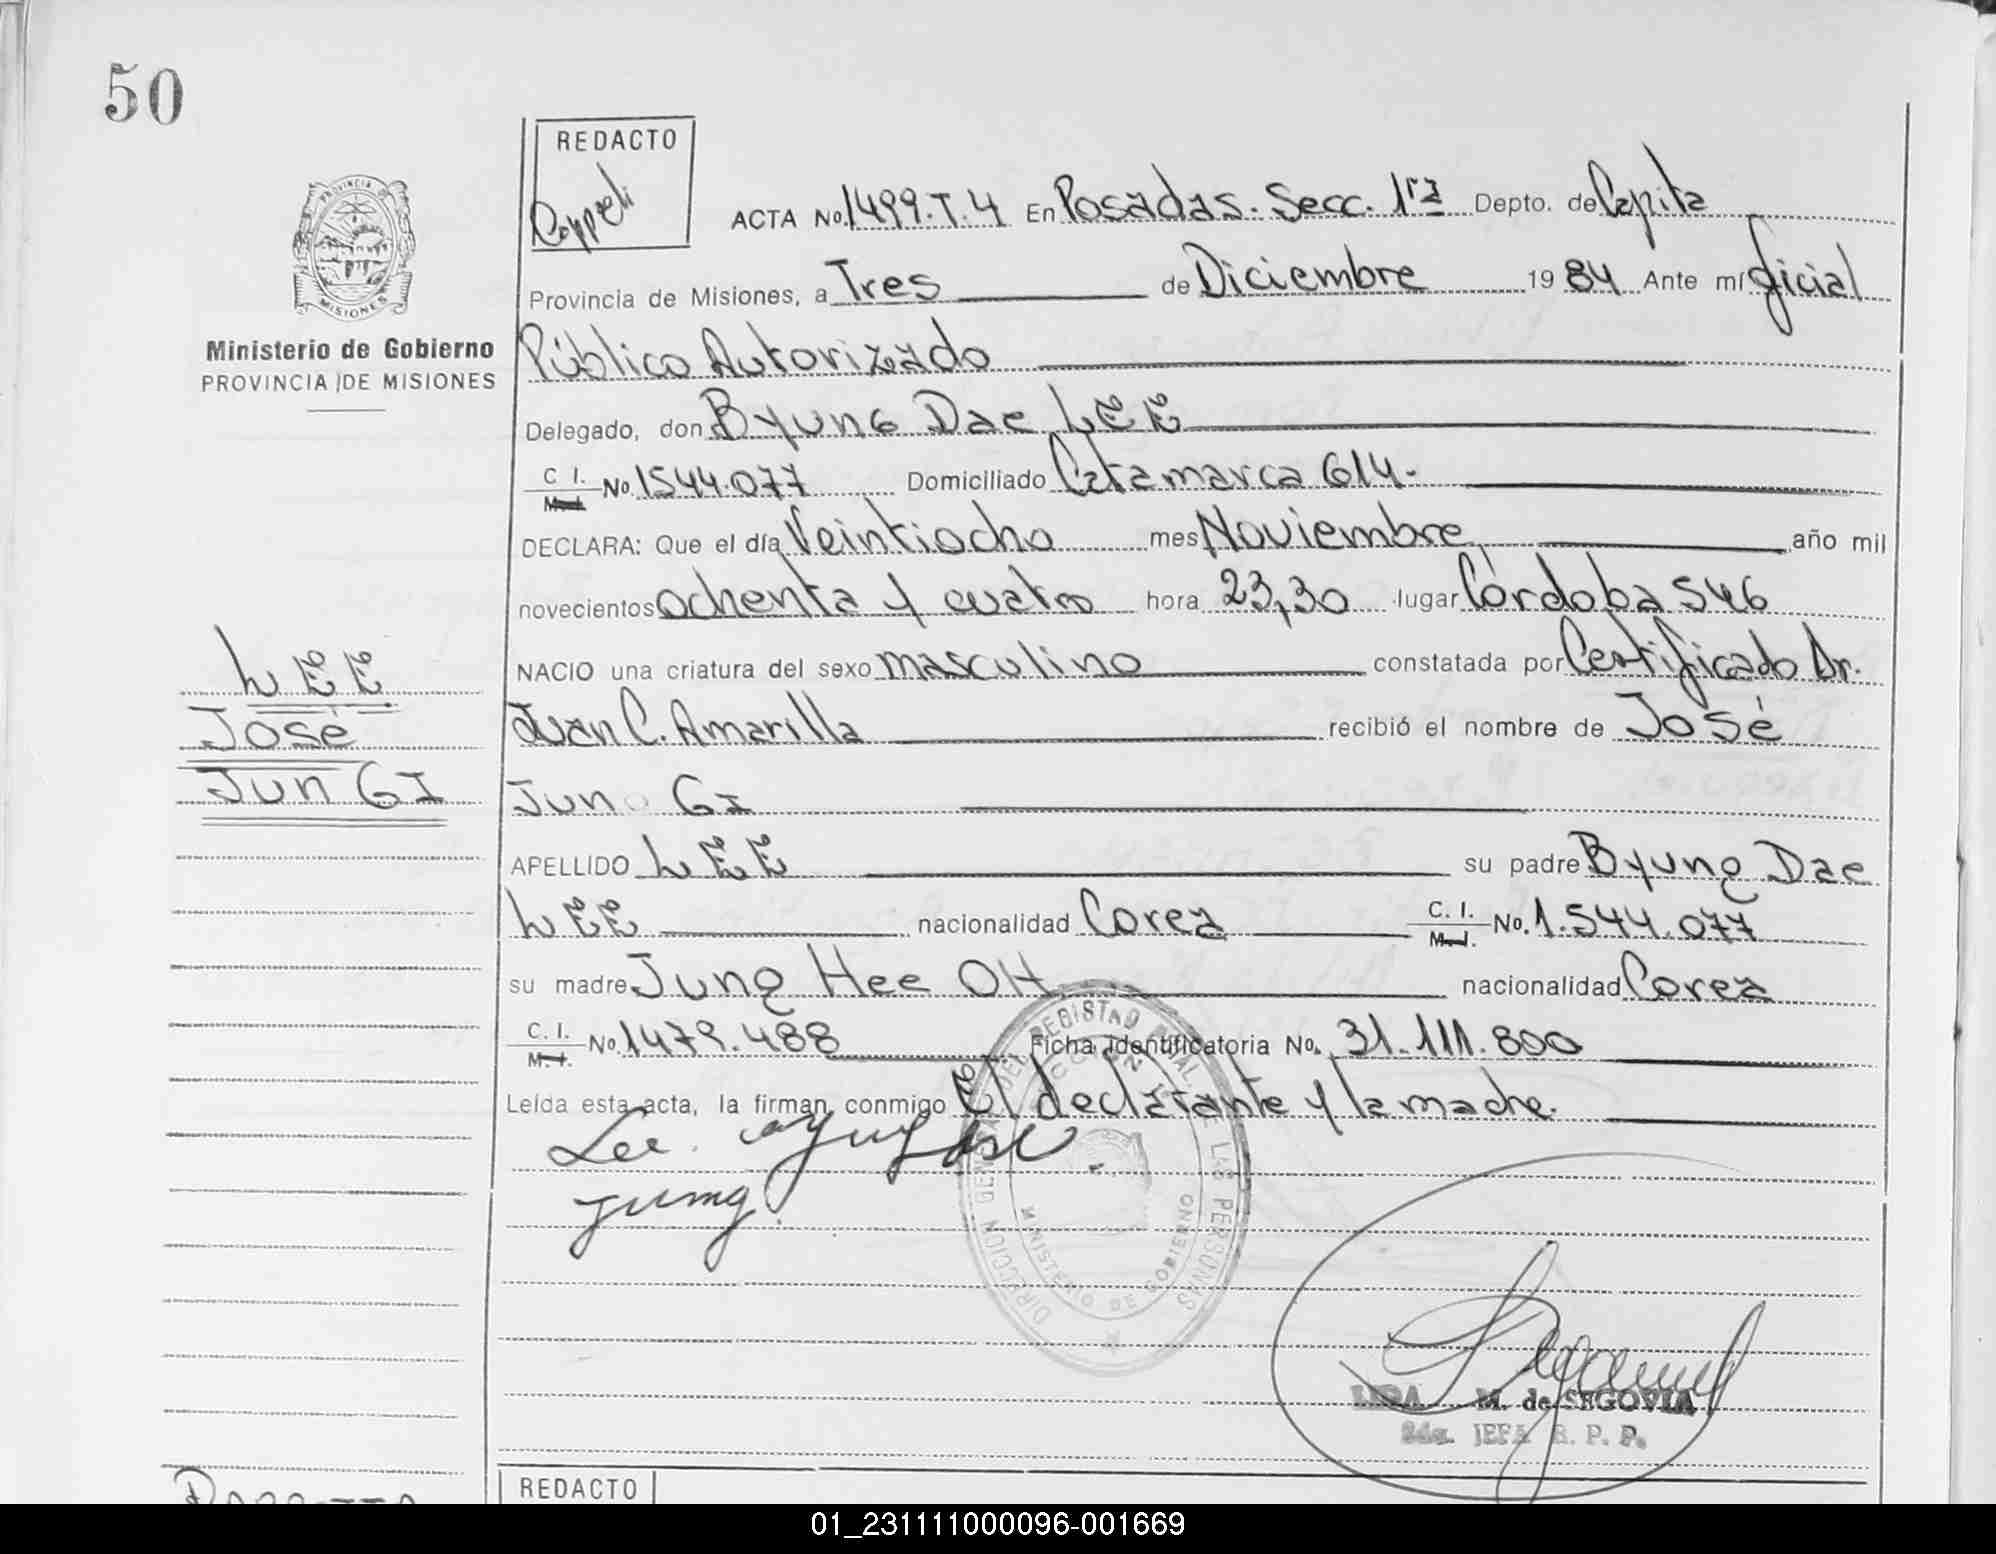 50
REDACTO
ACTA No. 1499.T.4 En Posadas. Secc. 1ra Depto. de Capita
Provincia de Misiones, a Tres de Diciembre 1984 Ante mí Oficial
Público Autorizado
Delegado, don Byung Dae LEE
C. I. No. 1544.077 Domiciliado Catamarca 614.
DECLARA: Que el día Veintiocho mes Noviembre año mil
novecientos ochenta y cuatro hora 23,30 lugar Córdoba 546
NACIO una criatura del sexo masculino constatada por Certificado Dr.
Juan C. Amarilla recibió el nombre de José
Jun GI
APELLIDO LEE su padre Byung Dae
LEE nacionalidad Corea C. I. M.I. No. 1.544.077
su madre Jung Hee OH nacionalidad Corea
C. I. M.I. No. 1479.488 Ficha Identificatoria No. 31.111.800
Leída esta acta, la firman conmigo El declarante y la madre.
Lee
Jung
PROVINCIA DE
MISIONES
Ministerio de Gobierno
PROVINCIA DE MISIONES
LEE
José
Jun GI
DIRECCION GENERAL DEL REGISTRO DE LAS PERSONAS
MINISTERIO DE GOBIERNO
M. de SEGOVIA
JEFA R. P. P.
REDACTO
01_231111000096-001669